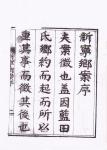 新寧鄉案序
夫案徵也蓋因藍田
氏鄉約而起而所以
重其事而徵其後也